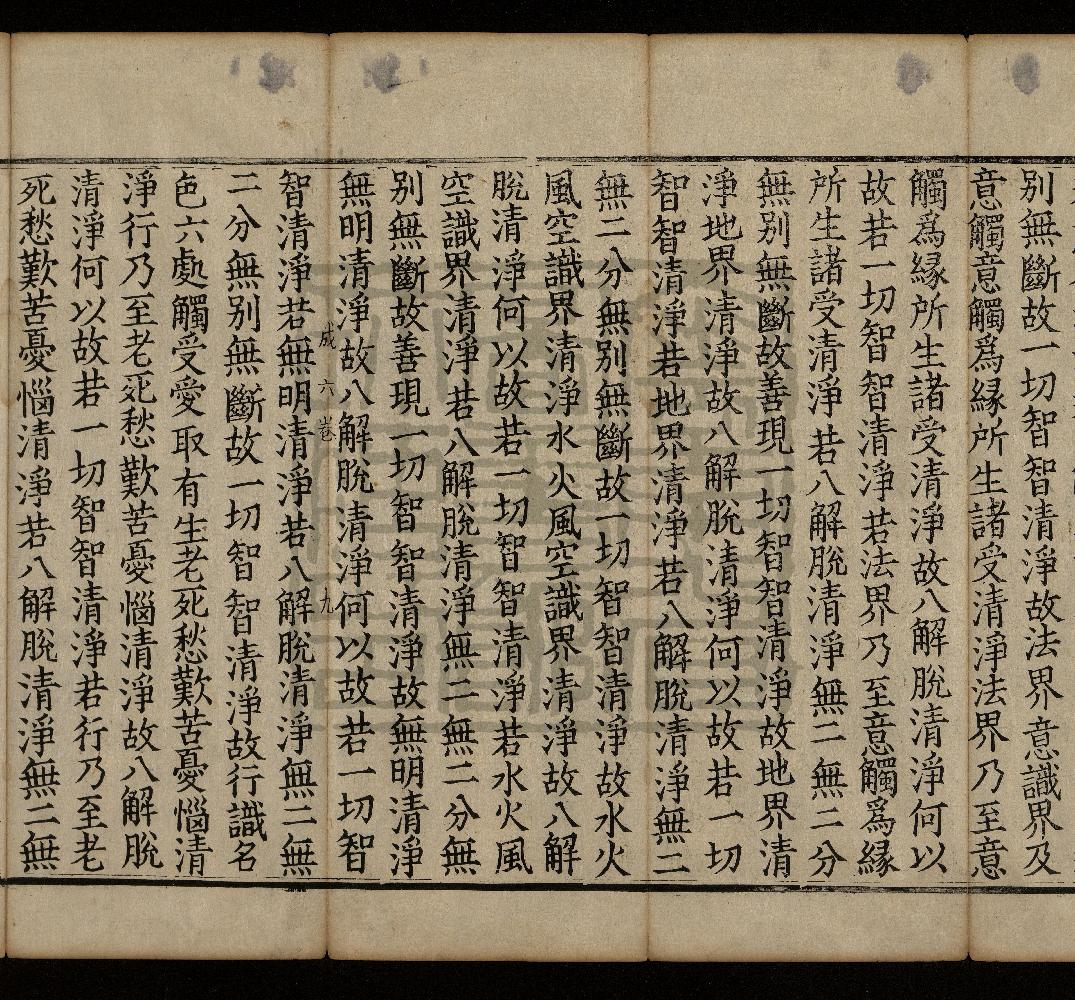 別無斷故一切智智清淨故法界意識界及
意觸意觸爲緣所生諸受清淨法界乃至意
觸爲緣所生諸受清淨故八解脫清淨何以
故若一切智智清淨若法界乃至意觸爲緣
所生諸受清淨若八解脫清淨無二無二分
無別無斷故善現一切智智清淨故地界清
淨地界清淨故八解脫清淨何以故若一切
智智清淨若地界清淨若八解脫清淨無二
無二分無別無斷故一切智智清淨故水火
風空識界清淨水火風空識界清淨故八解
脫清淨何以故若一切智智清淨若水火風
空識界清淨若八解脫清淨無二無二分無
別無斷故善現一切智智清淨故無明清淨
無明清淨故八解脫清淨何以故若一切智
咸 六卷 九
智清淨若無明清淨若八解脫清淨無二無
二分無別無斷故一切智智清淨故行識名
色六處觸受愛取有生老死愁歎苦憂惱清
淨行乃至老死愁歎苦憂惱清淨故八解脫
清淨何以故若一切智智清淨若行乃至老
死愁歎苦憂惱清淨若八解脫清淨無二無